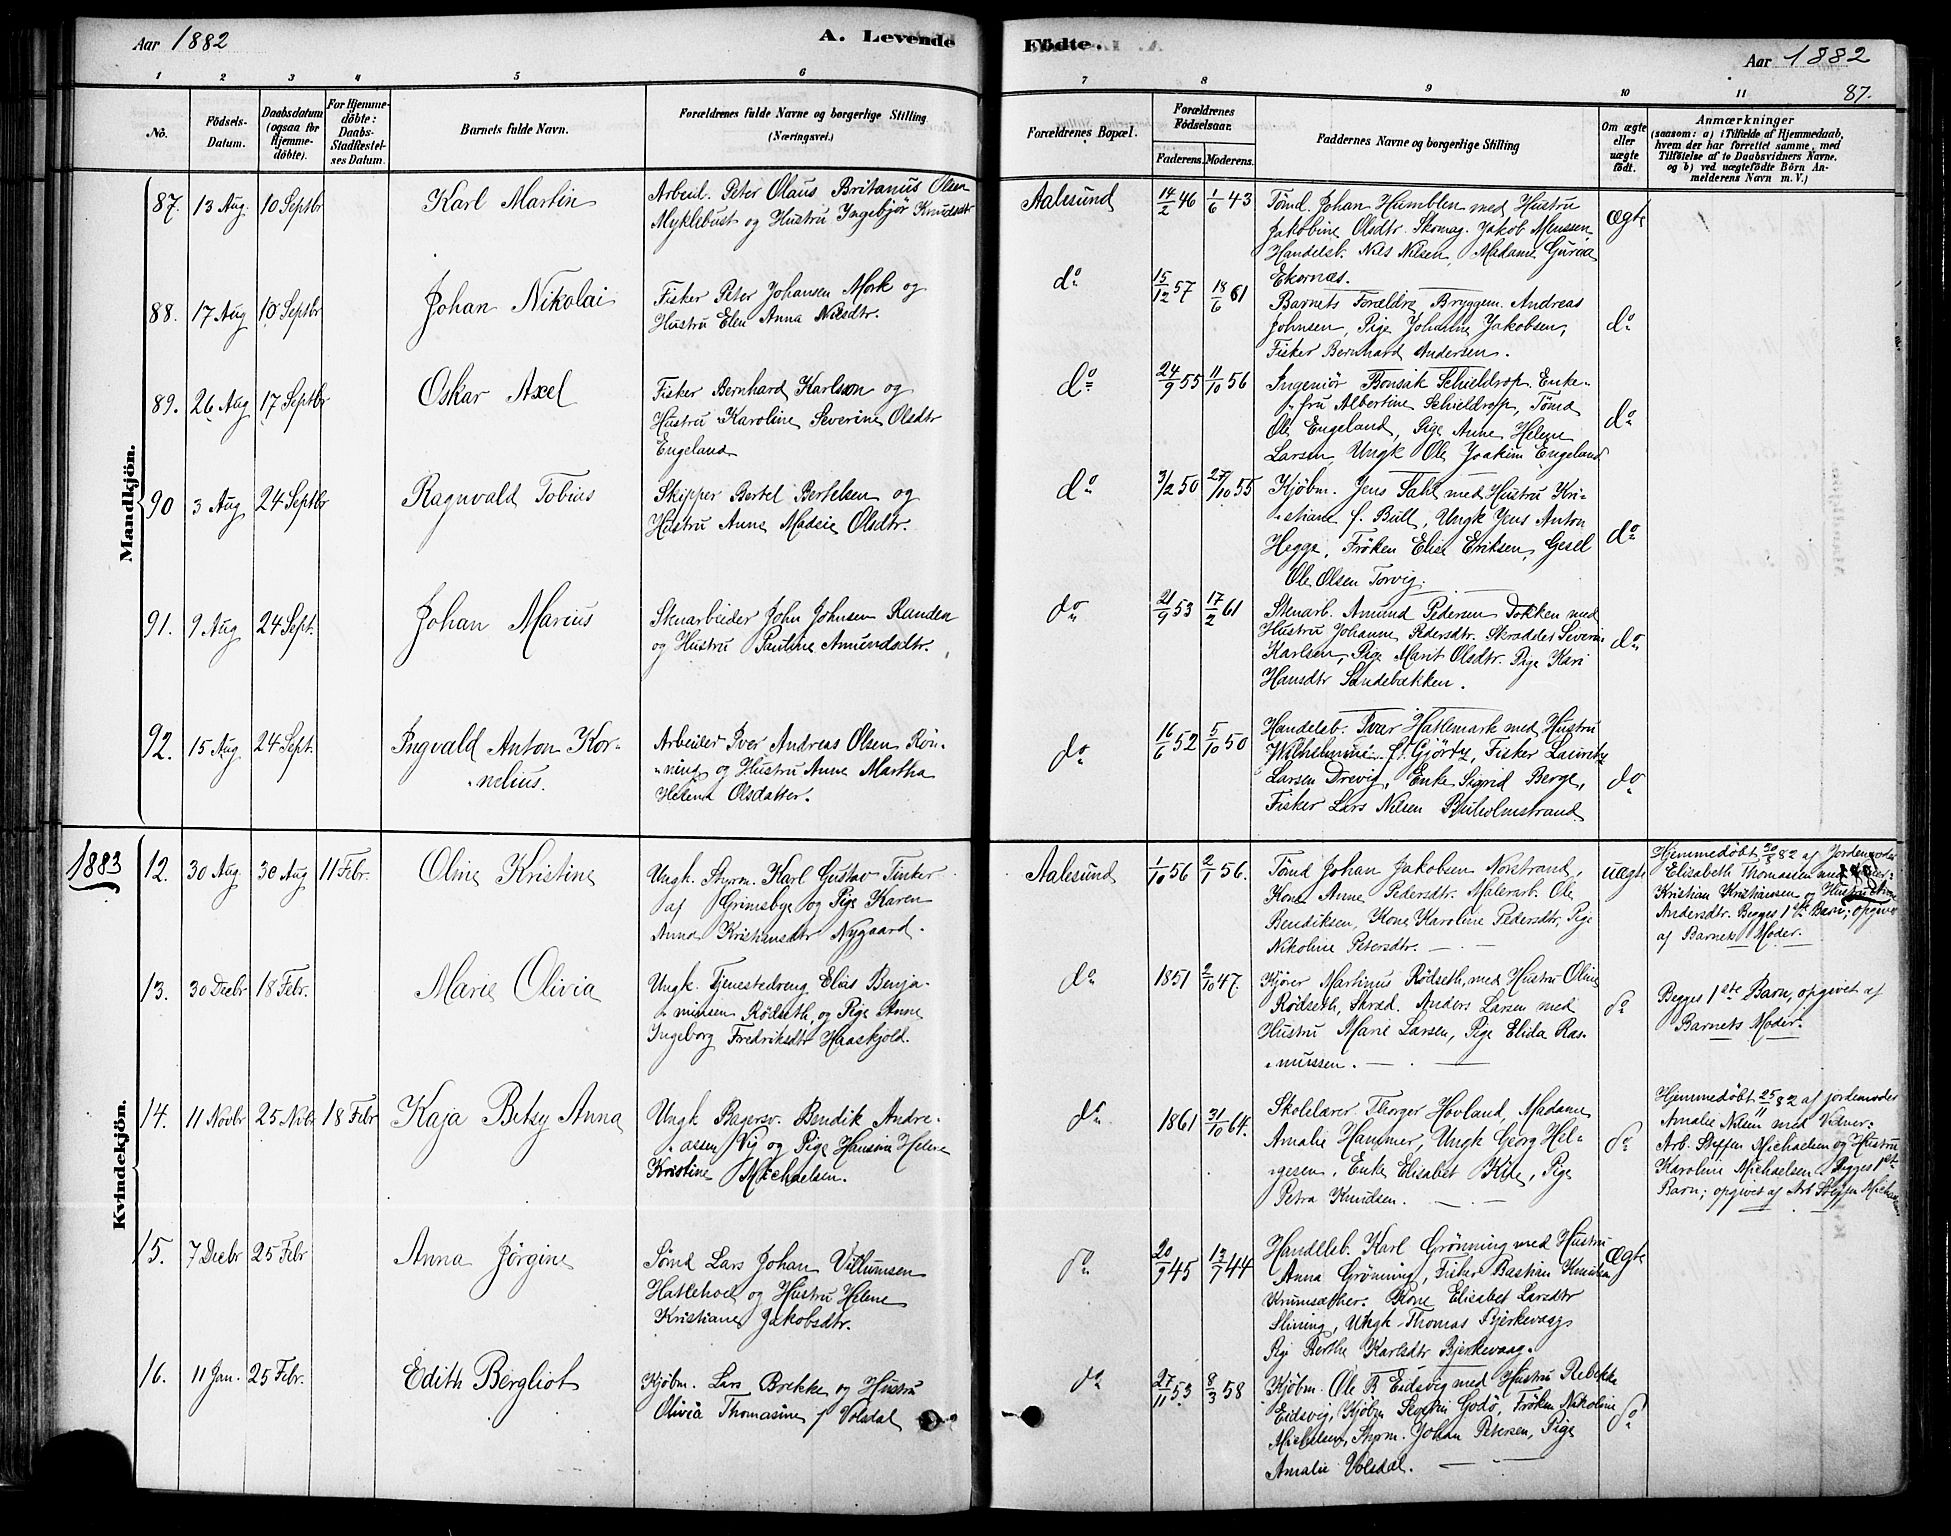 Aar 1882
A. Levende
Födte.
Aar 1882
87.
1 2 3 4 5 6 7 8 9 10 11
No.
Födsels-
Datum.
Daabsdatum
(ogsaa for
Hjemme-
döbte).
For Hjemme-
döbte:
Daabs-
Stadfæstel-
ses Datum.
Barnets fulde Navn.
Forældrenes fulde Navne og borgerlige Stilling
(Næringsvei.)
Forældrenes Bopæl.
Forældrenes
Födselsaar.
Faderens. Moderens.
Faddernes Navne og borgerlige Stilling
Om ægte
eller
uægte
födt.
Anmærkninger
(saasom: a) i Tilfælde af Hjemmedaab,
hvem der har forrettet samme, med
Tilföielse af to Daabsvidners Navne,
og b) ved uægtefödte Börn An-
melderens Navn m. V.)
Mandkjön.
87. 13 Aug. 10 Septbr
Karl Martin
Arbeid. Peter Olaus Britanus Olsen
Myklebust og Hustru Ingebjör Knudsdtr
Aalesund
14/2 46 1/6 43
Tömd. Johan Humblen med Hustru
Jakobine Olsdtr. Skomag. Jakob Monssen
Handelsb. Nils Nilsen, Madame Gurine
Ekornæs.
Ægte
88. 17 Aug 10 Septbr
Johan Nikolai
Fisker Peter Johansen Mork og
Hustru Elen Anna Nilsdtr.
do
15/12 57 18/6 61
Barnets Forældre, Bryggem. Andreas
Johnsen, Pige Johanne Jakobsen,
Fisker Bernhard Andersen.
do
89. 26 Aug 17 Septbr
Oskar Axel
Fisker Bernhard Karlson og
Hustru Karoline Severine Olsdtr
Engeland
do
24/9 55 11/10 56
Ingeniör Bonsak Schieldrop, Enke-
fru Albertine Schieldrop, Tömd
Ole Engeland, Pige Anne Helene
Larsen, Ungk Ole Joakim Engeland
do
90 3 Aug 24 Septbr
Ragnvald Tobias
Skipper Bertel Bertelsen og
Hustru Anne Madsie Olsdtr.
do
3/2 50 27/10 55
Kjöbm. Jens Dahl med Hustru Kri-
stiane f. Bull, Ungk Jens Anton
Hegge, Fröken Elise Eriksen, Gesel
Ole Olsen Torvig.
do
91. 9 Aug 24 Sept.
Johan Marius
Stenarbeider John Johnsen Randen
og Hustru Pauline Amundsdtr.
do
21/9 53 17/2 61
Stenarb. Amund Pedersen Dokken med
Hustru Johanne Pedersdtr. Skrædder Severin
Karlsen, Pige Marit Olsdtr. Pige Kari
Hansdtr Sandebakken.
do
92. 15 Aug 24 Sept.
Ingvald Anton Kor-
nelius.
Arbeider Iver Andreas Olsen Rön-
ning og Hustru Anne Martha
Helene Olsdatter.
do
16/6 52 5/10 50
Handelsb. Ivar Hatlemark med Hustru
Wilhelmine f. Gjörtz, Fisker Lauritz
Larsen Drevig, Enke Sigrid Berge,
Fisker Lars Nilsen Buholmstrand
do
1883
Kvindekjön.
12. 30 Aug 30 Aug 11 Febr.
Oline Kristine
Ungk. Styrm. Karl Gustav Tinker
af Grimsbye og Pige Karen
Anna Kristiansdtr Nygaard.
Aalesund
1/10 56 2/1 56.
Tömd Johan Jakobsen Norstrand,
Kone Anne Pedersdtr. Malerarb. Ole
Bendiksen, Kone Karoline Pedersdtr, Pige
Nikoline Petersdtr.
uægte
Hjemmedöbt 30/8 82 af Jordemoder
Elisabeth Thomassen med
Kristian Kristiansen og Hustru
Andersdtr. Begges 1ste Barn; opgivet
af Barnets Moder.
13. 30 Decbr 18 Febr.
Marie Olivia
Ungk. Tjenestedreng Elias Benja-
minsen Rödseth, og Pige Anne
Ingeborg Fredriksdtr Haaskjold.
do
1851 2/10 47.
Kjörer Martinus Rödseth, med Hustru Oline
Rödseth, Skræd. Anders Larsen med
Hustru Marie Larsen, Pige Elida Ras-
mussen.
do
Begges 1ste Barn, opgivet af
Barnets Moder.
14. 11 Novbr 25 Nvbr 18 Febr
Kaja Betsy Anna
Ungk Bagersv. Bendik Andre-
assen Vig og Pige Hansine Helene
Kristine Michaelsen.
do
1861 31/10 64.
Skolelærer Thorger Hovland, Madame
Amalie Hammer, Ungk Georg Hel-
gesen, Enke Elisabet Kile, Pige
Petra Knudsen.
do
Hjemmedöbt 25/11 82 af jordemoder
Amalie Nilsen med Vidner:
Arb. Steffen Michaelsen og Hustru
Karoline Michaelsen. Begges 1ste
Barn; opgivet af Arb Steffen Michaelsen
15. 7 Decbr 25 Febr
Anna Jörgine
Tömd Lars Johan Villumsen
Hatlehoel og Hustru Helene
Kristiane Jakobsdtr.
do
20/9 45 13/7 44
Handelsb. Karl Grönning med Hustru
Anna Grönning, Fisker Bastian Knudsen
Krumsæther. Kone Elisabet Larsdtr
Slining, Ungk Thomas Bjerkevaag
Pig Berthe Karlsdtr Bjerkevaag.
Ægte
16. 11 Jan. 25 Febr.
Edith Bergliot
Kjöbm. Lars Brekke og Hustru
Olivia Thomasine f Volsdal
do
27/11 53 8/3 58
Kjöbm. Ole B Eidsvig med Hustru Rebekka
Eidsvig, Kjöbm Severin Godö, Fröken Nikoline
Michelsen, Styrm. Johan Petersen, Pige
Amalie Volsdal.
do